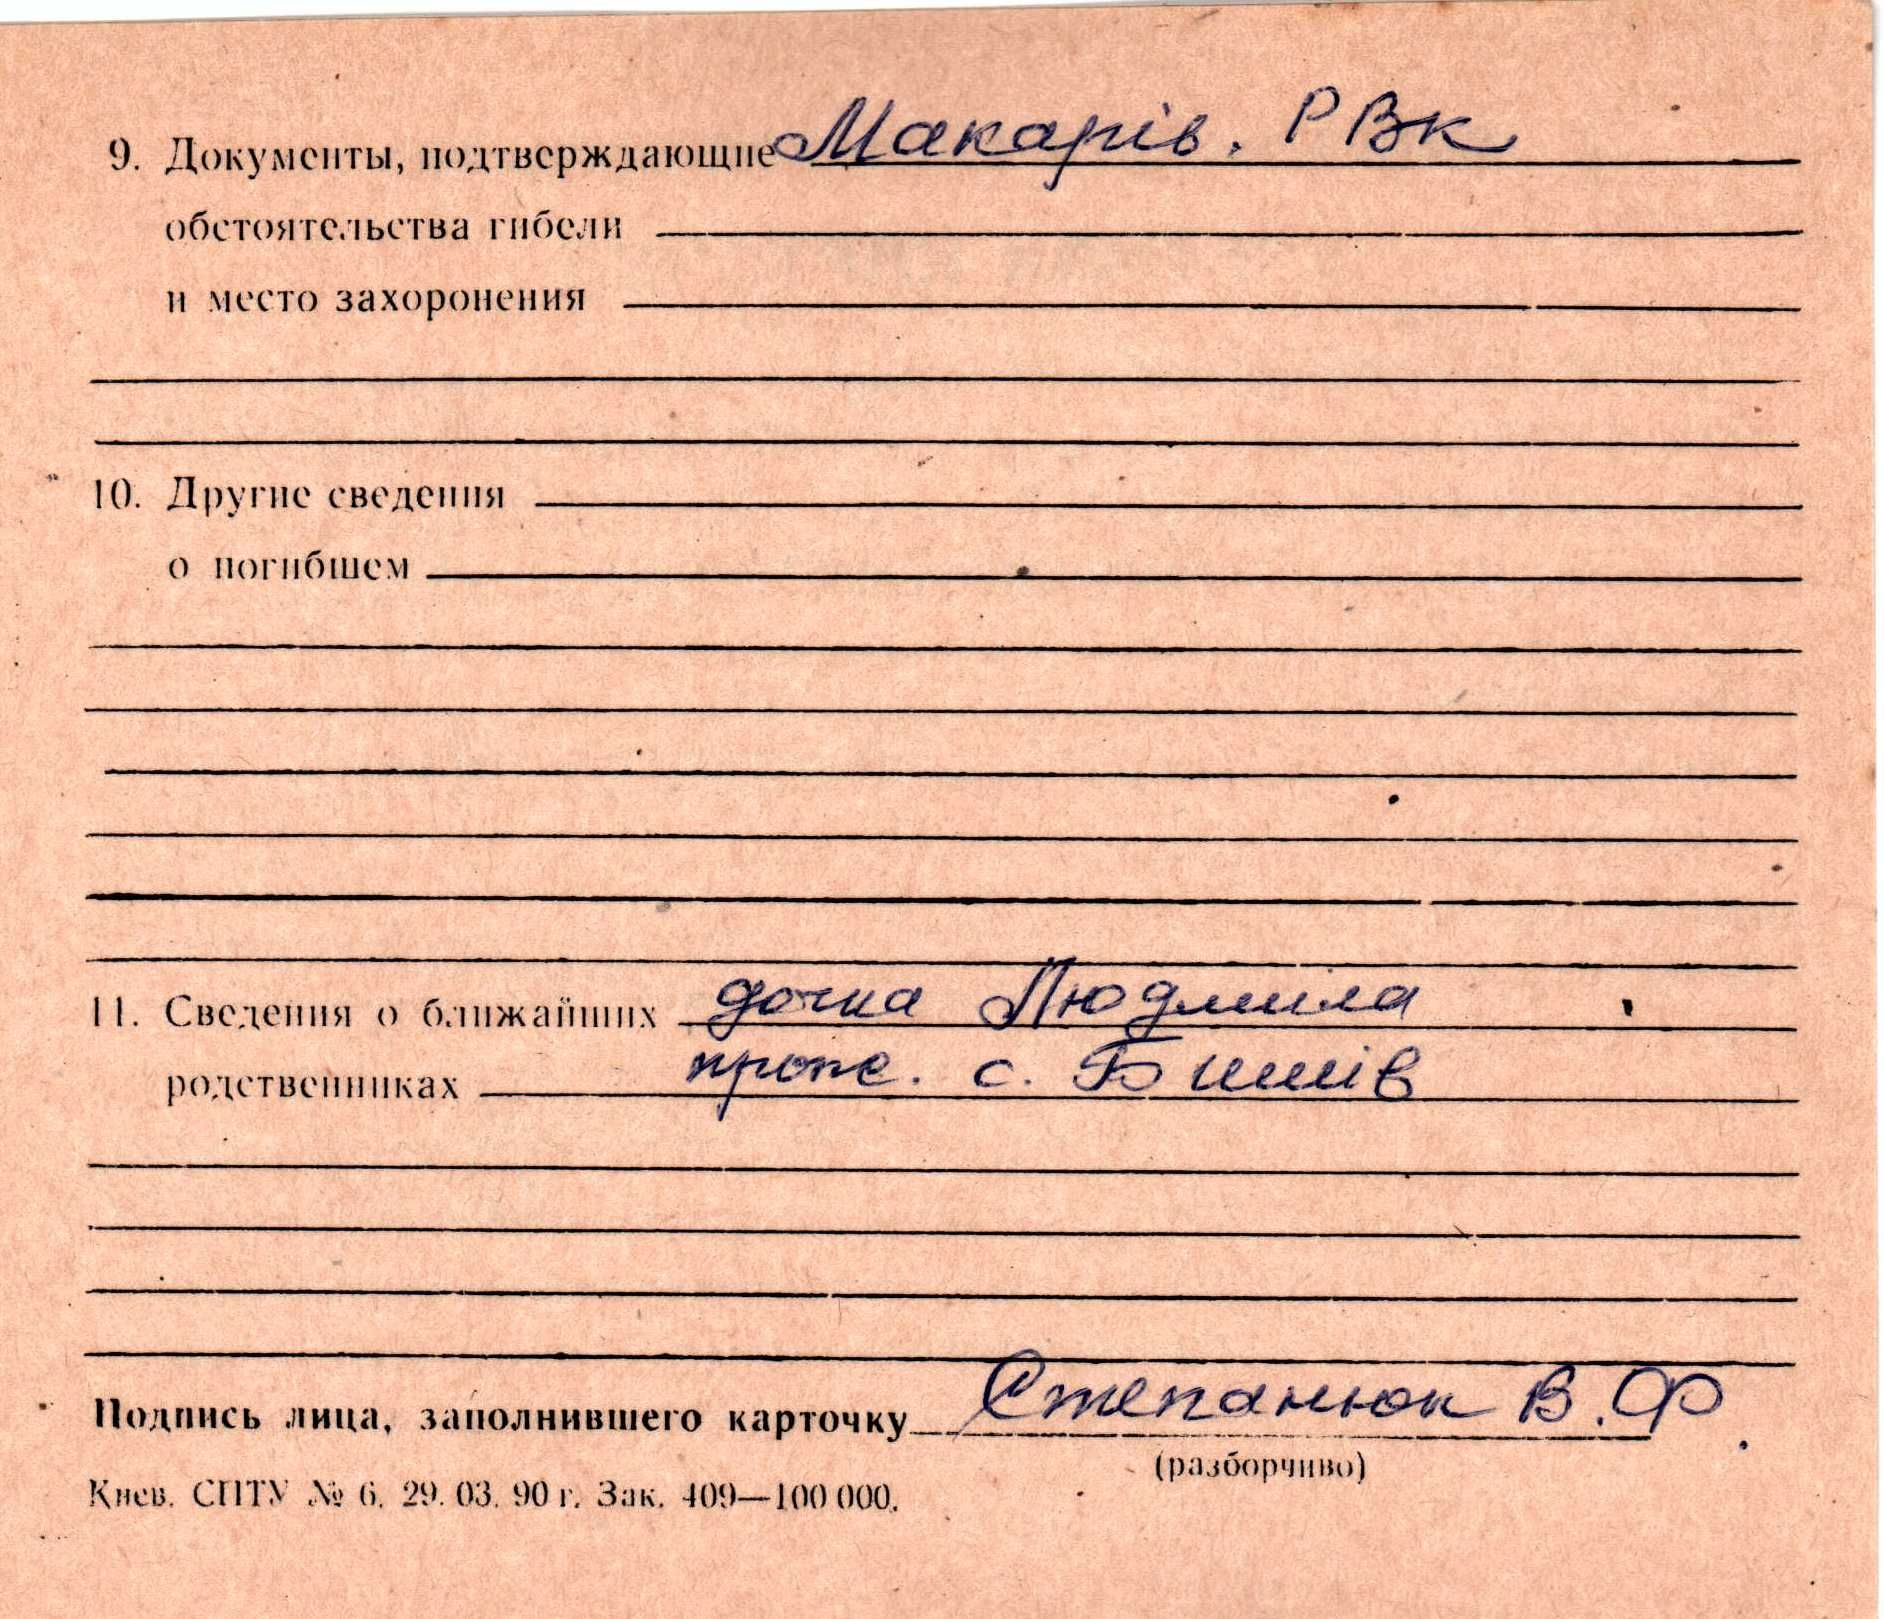 9. Документы, подтверждающие Макарів. РВк
обстоятельства гибели
и место захоронения
10. Другие сведения
о погибшем
11. Сведения о ближайших дочка Людмила
родственниках прож. с. Бишів
Подпись лица, заполнившего карточку Степанюк В.Ф.
(разборчиво)
Киев. СПТУ № 6. 29. 03. 90 г. Зак. 409—100 000.